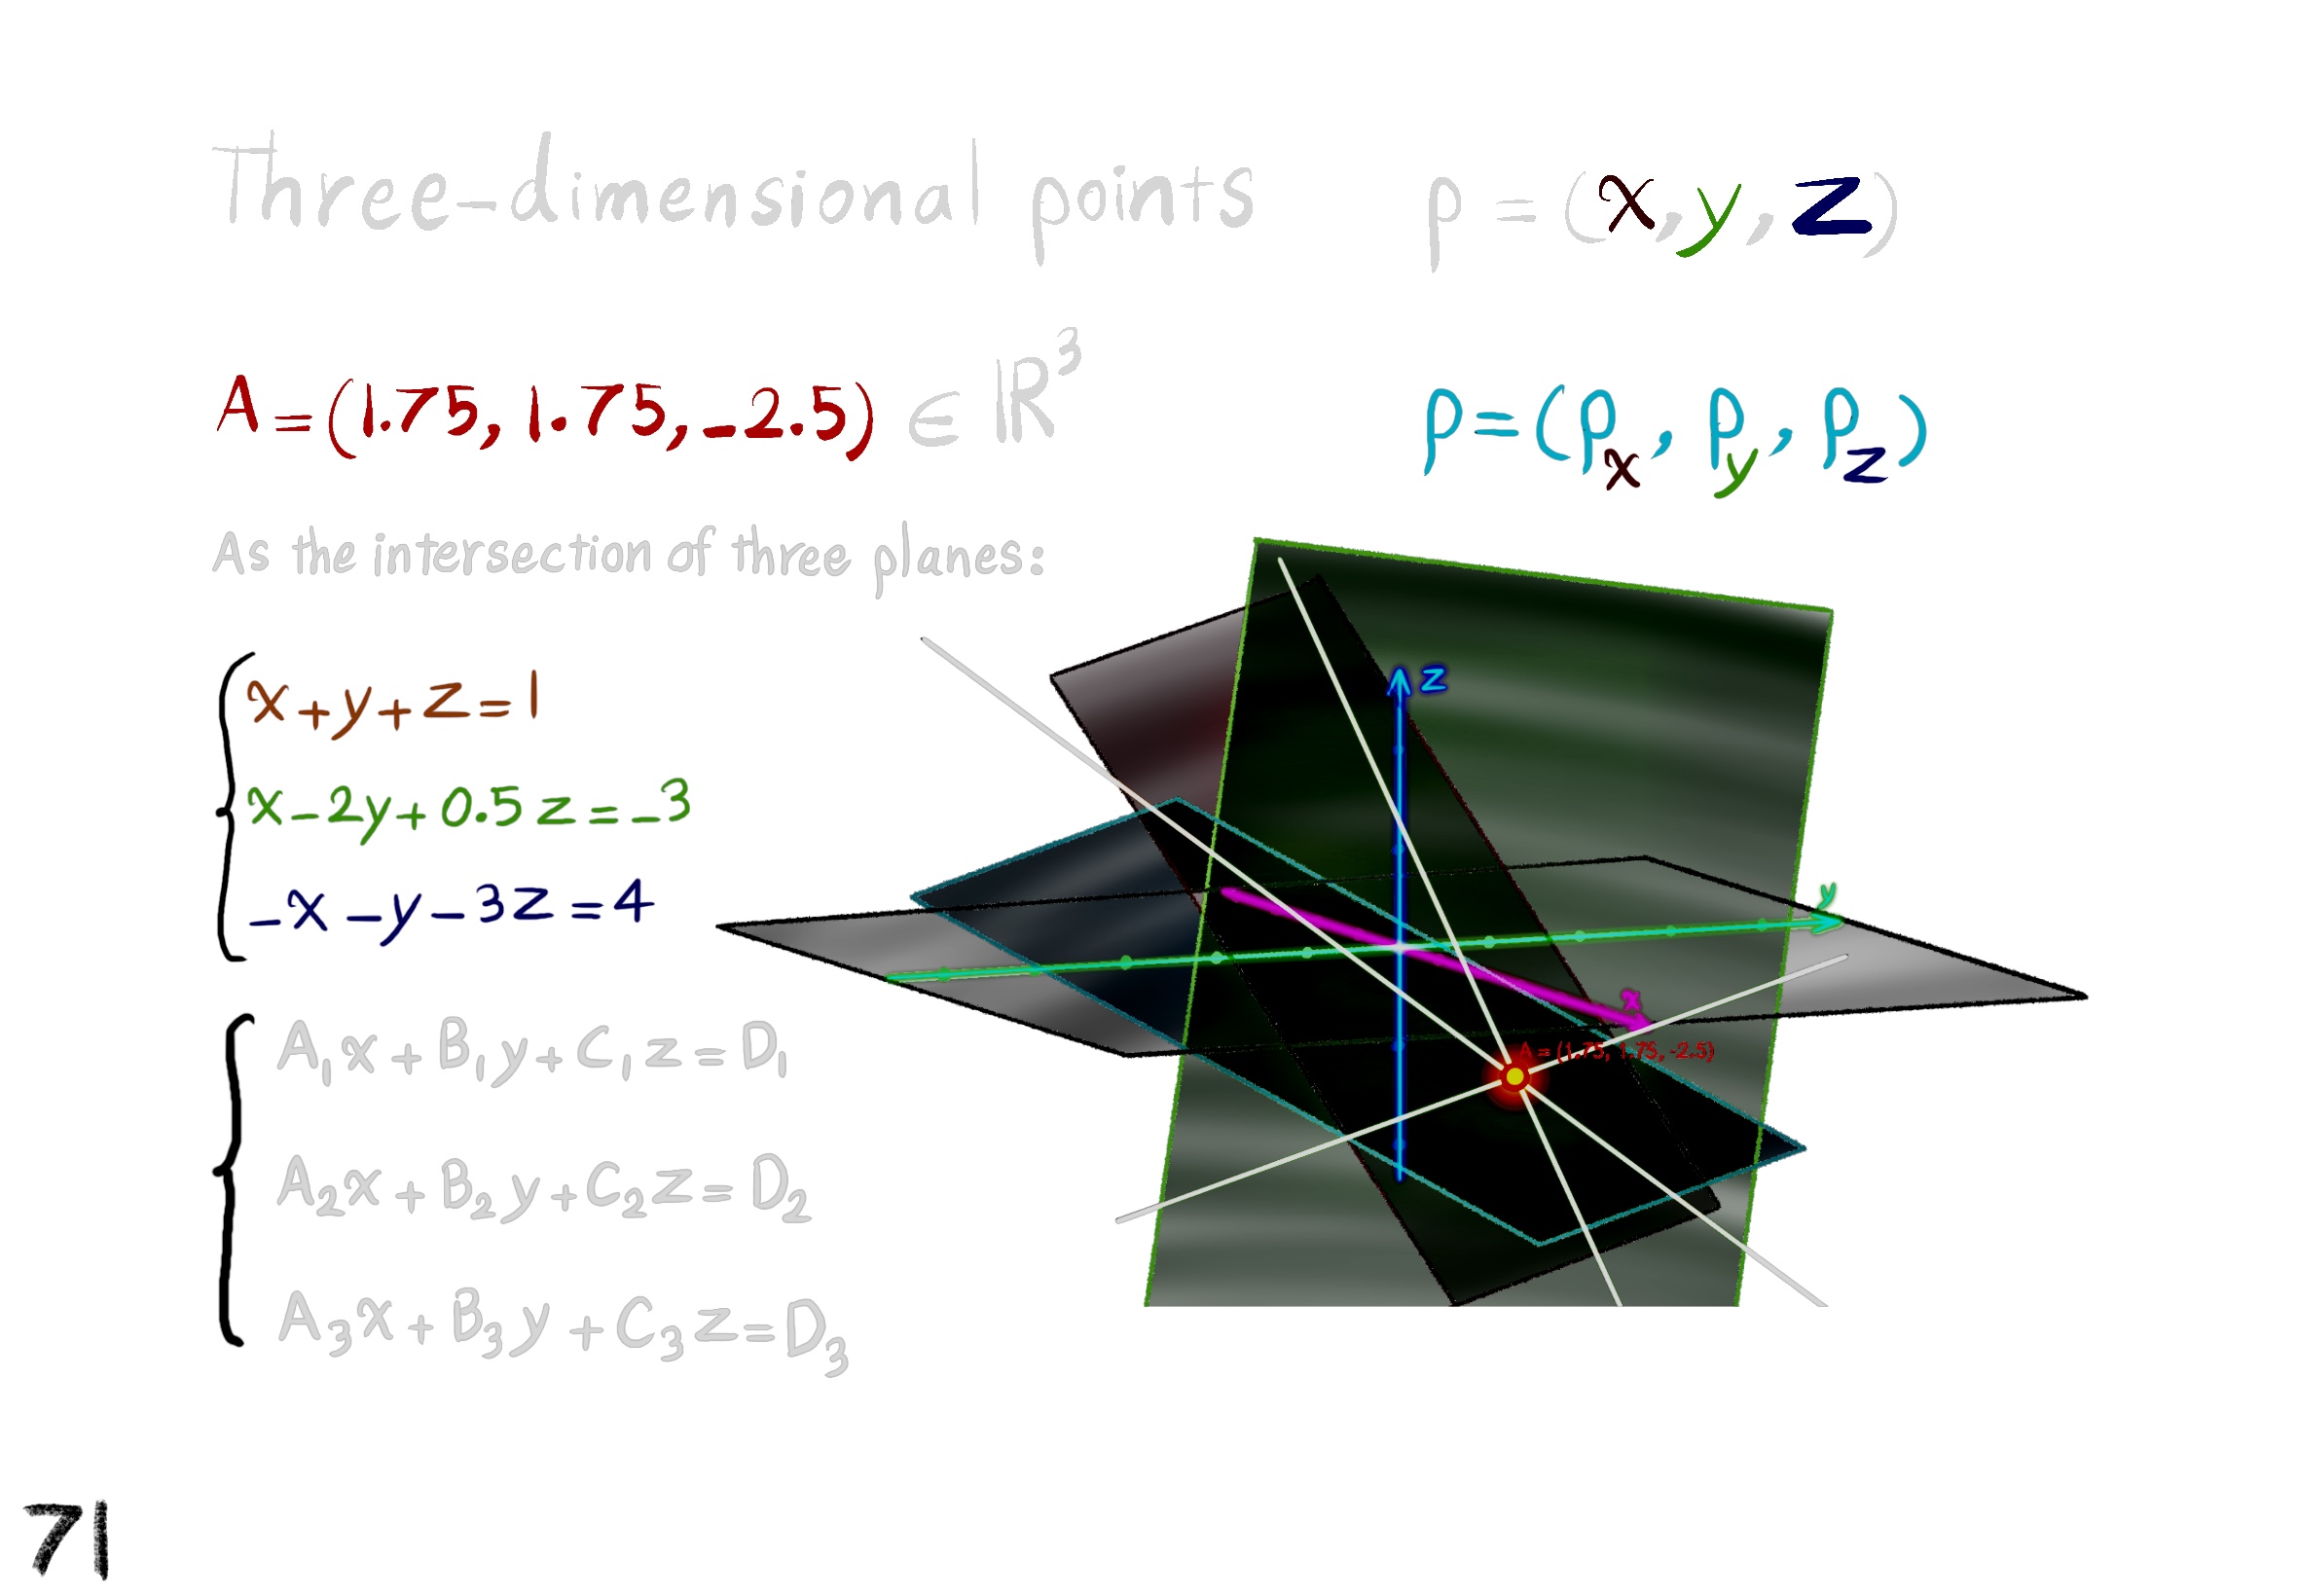 Three-dimensional points
p = (x, y, z)
A = (1.75, 1.75, -2.5) ∈ ℝ³
p = (pₓ, p_y, p_z)
As the intersection of three planes:
x + y + z = 1
x - 2y + 0.5z = -3
-x - y - 3z = 4
A₁x + B₁y + C₁z = D₁
A₂x + B₂y + C₂z = D₂
A₃x + B₃y + C₃z = D₃
z
y
x
A = (1.75, 1.75, -2.5)
71